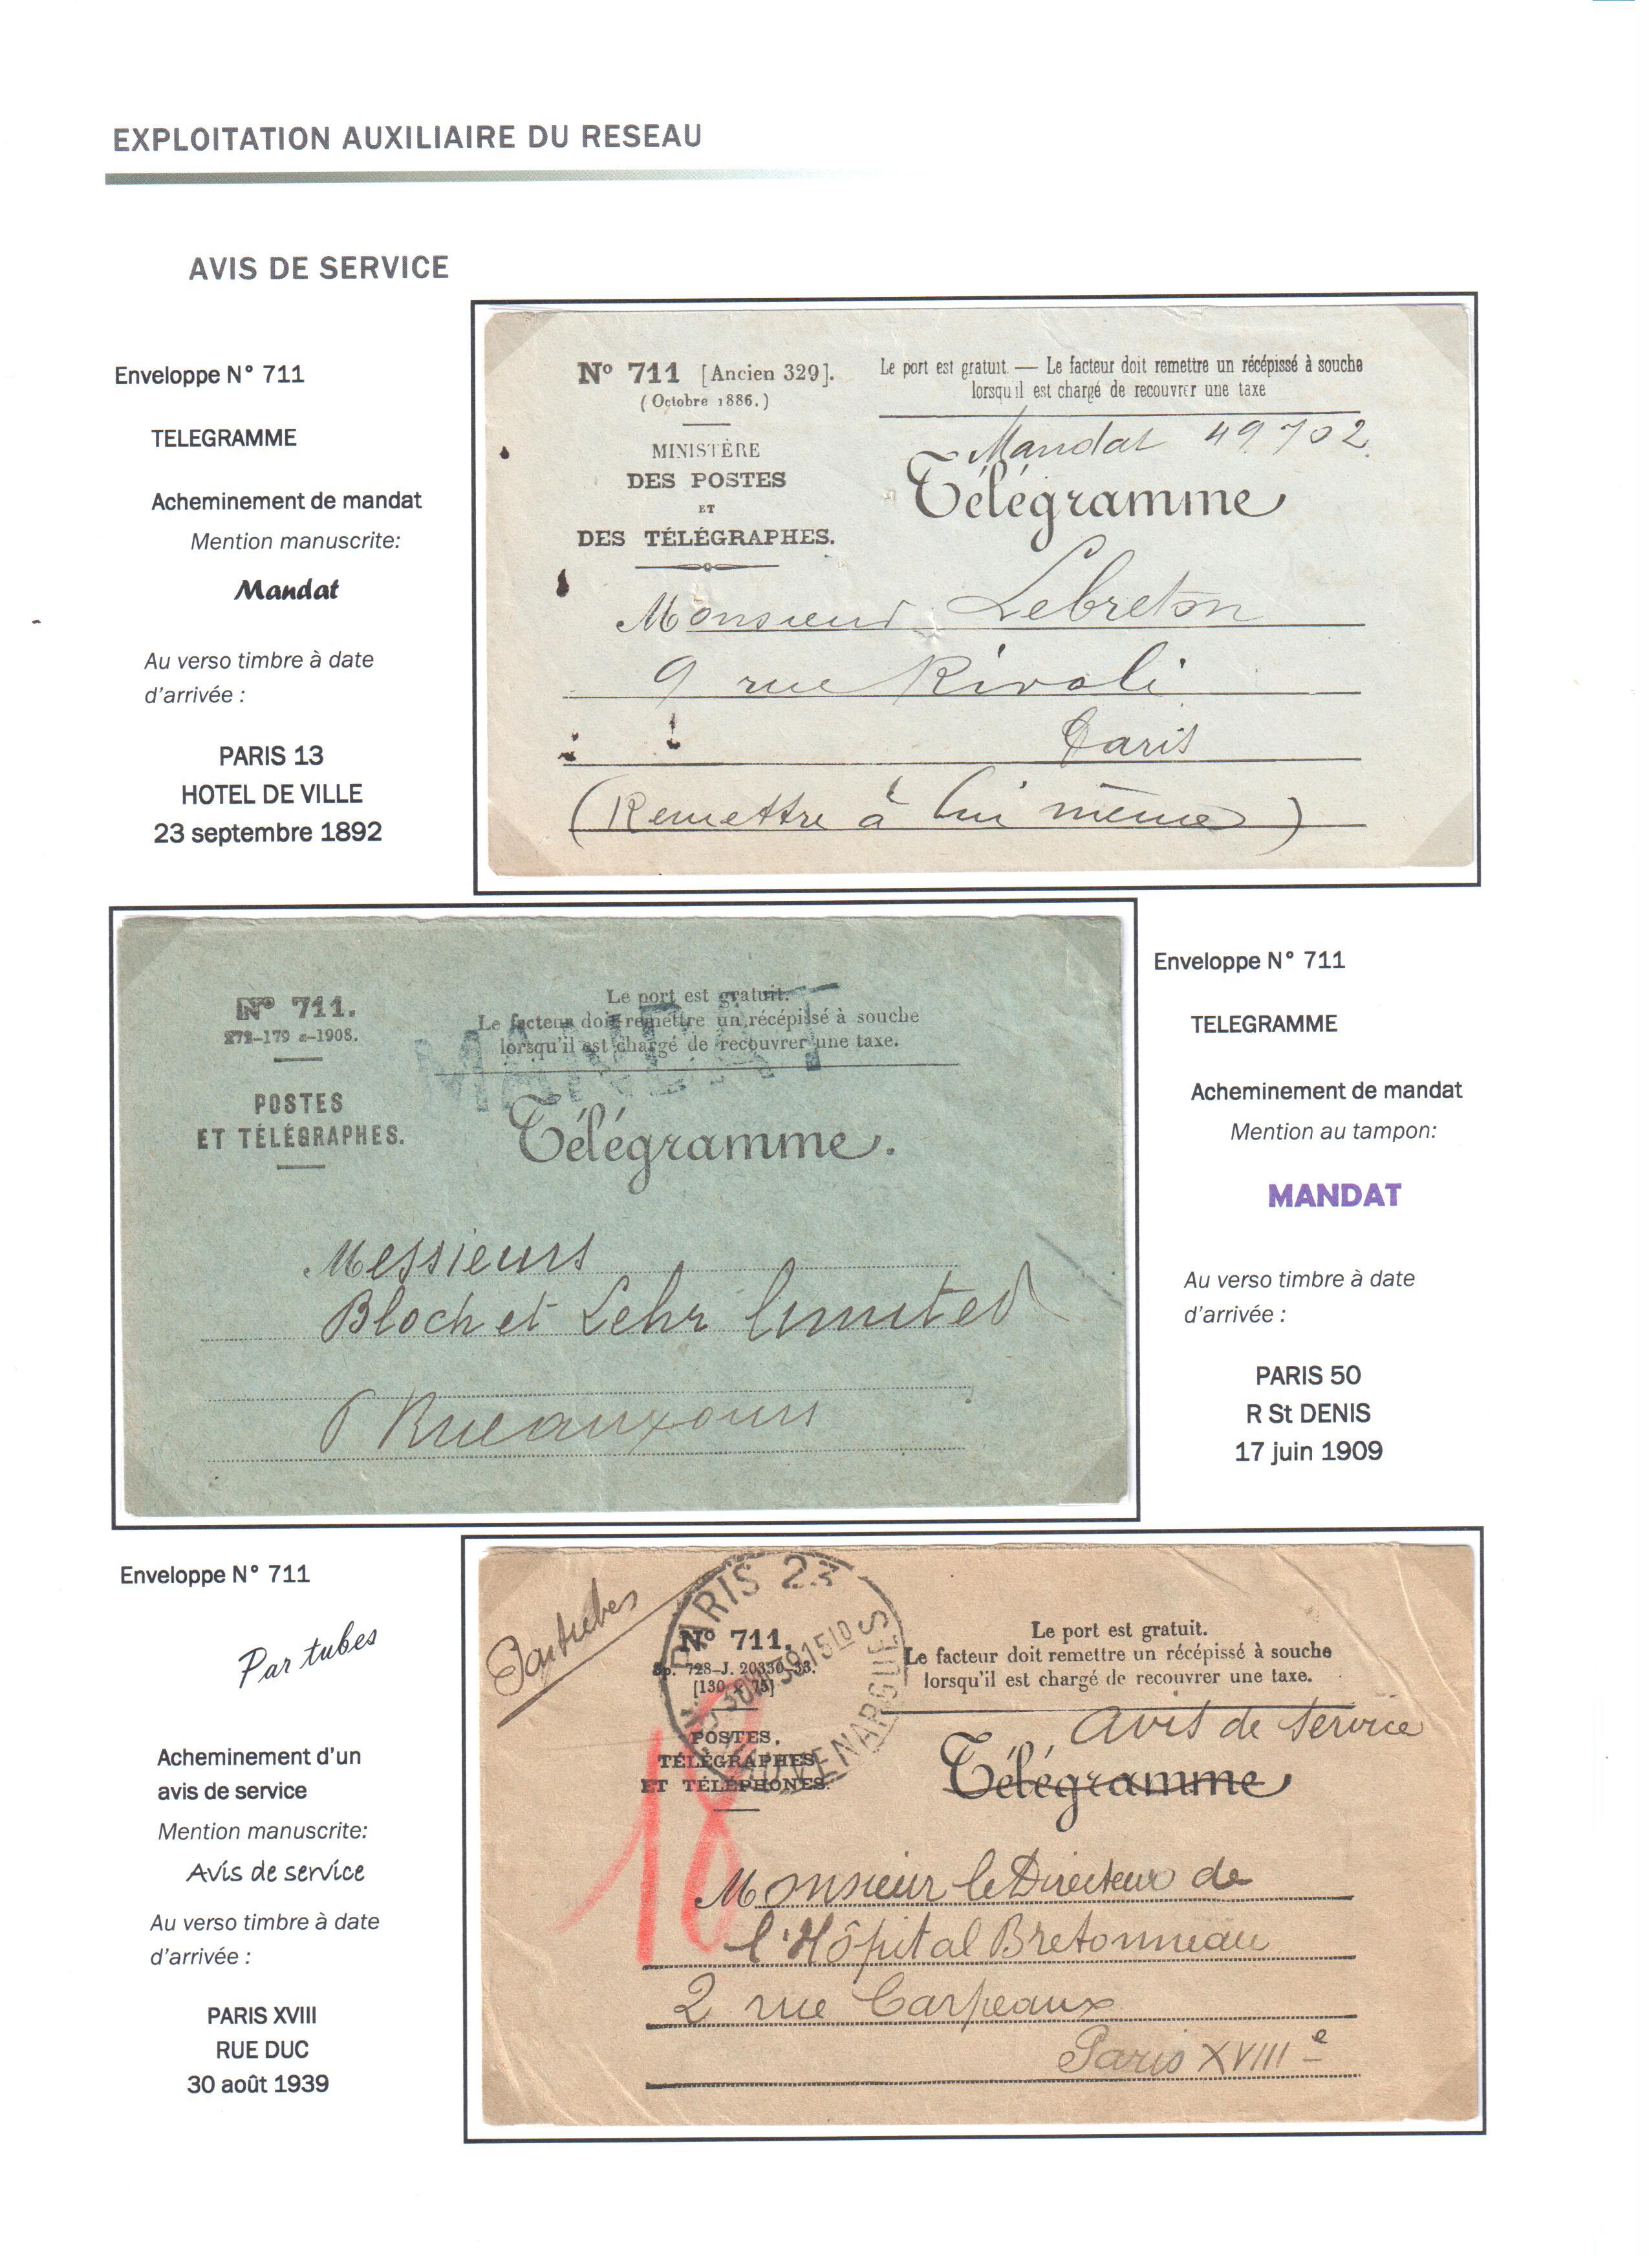 EXPLOITATION AUXILIAIRE DU RESEAU
AVIS DE SERVICE
Enveloppe N° 711
TELEGRAMME
Acheminement de mandat
Mention manuscrite:
Mandat
Au verso timbre à date
d'arrivée :
PARIS 13
HOTEL DE VILLE
23 septembre 1892
N° 711 [Ancien 329].
( Octobre 1886. )
MINISTÈRE
DES POSTES
ET
DES TÉLÉGRAPHES.
Le port est gratuit. — Le facteur doit remettre un récépissé à souche
lorsqu'il est chargé de recouvrer une taxe
Mandat 49702
Télégramme
Monsieur Lebreton
9 rue Rivoli
Paris
(Remettre à lui même)
N° 711.
-179 -1908.
POSTES
ET TÉLÉGRAPHES.
Le port est gratuit.
Le facteur doit remettre un récépissé à souche
lorsqu'il est chargé de recouvrer une taxe.
MANDAT
Télégramme.
Messieurs
Bloch et Lehr limited
6 Rue aux ours
Enveloppe N° 711
TELEGRAMME
Acheminement de mandat
Mention au tampon:
MANDAT
Au verso timbre à date
d'arrivée :
PARIS 50
R St DENIS
17 juin 1909
Enveloppe N° 711
Par tubes
Acheminement d'un
avis de service
Mention manuscrite:
Avis de service
Au verso timbre à date
d'arrivée :
PARIS XVIII
RUE DUC
30 août 1939
Par tubes
PARIS 23
VAUVENARGUES
N° 711.
728-J. 20330-33.
[130 × 75]
POSTES,
TÉLÉGRAPHES
ET TÉLÉPHONES.
Le port est gratuit.
Le facteur doit remettre un récépissé à souche
lorsqu'il est chargé de recouvrer une taxe.
avis de service
Télégramme
18
Monsieur le Directeur de
l'Hôpital Bretonneau
2 rue Carpeaux
Paris XVIIIe